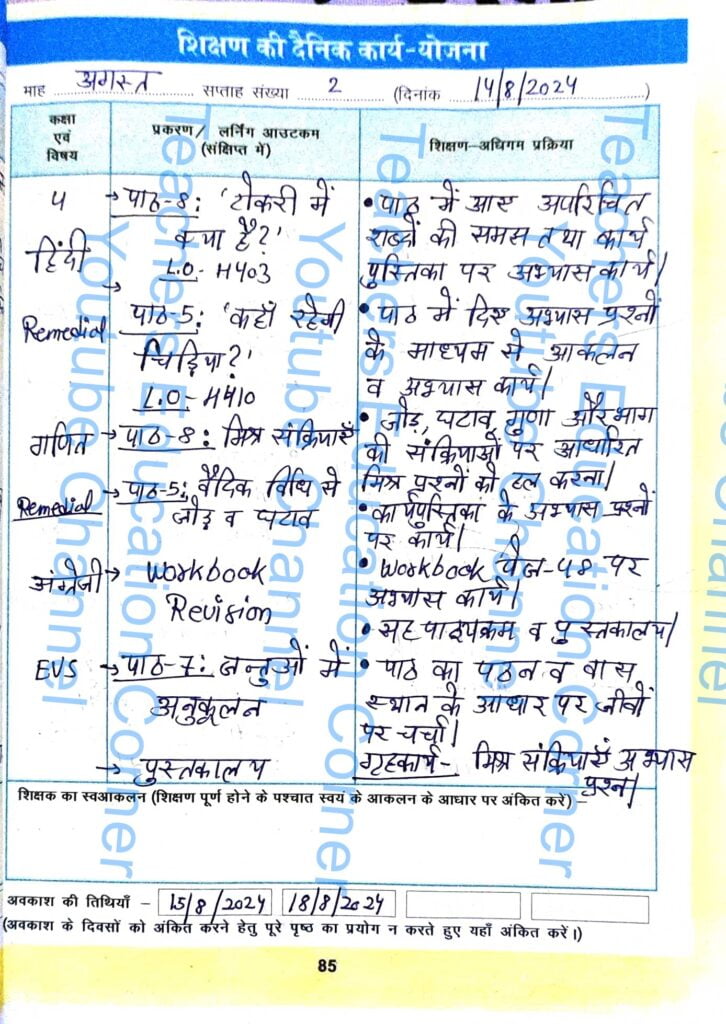 शिक्षण की दैनिक कार्य-योजना
माह अगस्त सप्ताह संख्या 2 (दिनांक 14/8/2024)
कक्षा एवं विषय
प्रकरण/ लर्निंग आउटकम (संक्षिप्त में)
शिक्षण-अधिगम प्रक्रिया
५
हिंदी
→ पाठ-8: 'टोकरी में
क्या है?'
L.O- H403
• पाठ में आए अपरिचित
शब्दों की समझ तथा कार्य
पुस्तिका पर अभ्यास कार्य।
Remedial
→ पाठ-5: 'कहाँ रहेगी
चिड़िया?'
L.O- H410
• पाठ में दिए अभ्यास प्रश्नों
के माध्यम से आकलन
व अभ्यास कार्य।
गणित → पाठ-8: मिश्र संक्रियाएँ
• जोड़, घटाव, गुणा और भाग
की संक्रियाओं पर आधारित
मिश्र प्रश्नों को हल करना।
Remedial → पाठ-5: वैदिक विधि से
जोड़ व घटाव
• कार्यपुस्तिका के अभ्यास प्रश्नों
पर कार्य।
अंग्रेजी → Workbook
Revision
• Workbook पेज-48 पर
अभ्यास कार्य।
• सह पाठ्यक्रम व पुस्तकालय।
EVS → पाठ-7: जन्तुओं में
अनुकूलन
• पाठ का पठन व वास
स्थान के आधार पर जीवों
पर चर्चा।
→ पुस्तकालय
गृहकार्य- मिश्र संक्रियाएँ अभ्यास
प्रश्न।
शिक्षक का स्वआकलन (शिक्षण पूर्ण होने के पश्चात स्वयं के आकलन के आधार पर अंकित करें) –
अवकाश की तिथियाँ - 15/8/2024 18/8/2024
(अवकाश के दिवसों को अंकित करने हेतु पूरे पृष्ठ का प्रयोग न करते हुए यहाँ अंकित करें।)
85
Teachers Education Corner
Youtube Channel
Teachers Education Corner
Youtube Channel
Teachers Education Corner
Youtube Channel